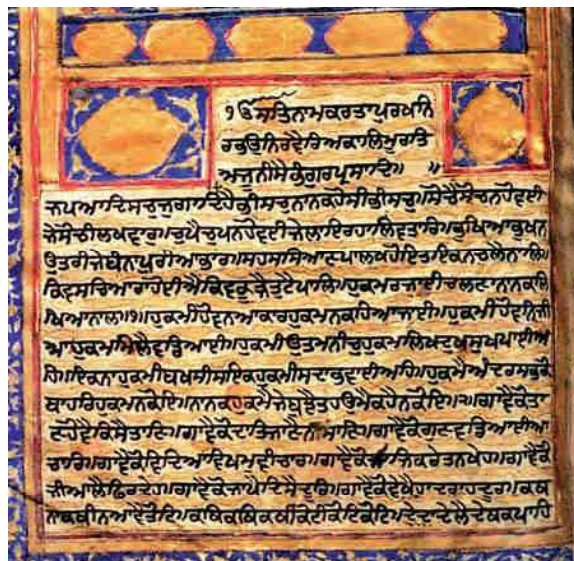 ੴਸਤਿਨਾਮਕਰਤਾਪੁਰਖਨਿ
ਰਭਉਨਿਰਵੈਰਿਅਕਾਲਿਮੂਰਤਿ
ਅਜੂਨੀਸੈਭੰਗੁਰਪ੍ਰਸਾਦਿ॥ ॥
ਜਪਆਦਿਸਚੁਜੁਗਾਦਿਹੈਭੀਸਚਨਾਨਕਹੋਸੀਭੀਸਚੁ॥ਸੋਚੈਸੋਚਨਹੋਵਈ
ਜੇਸੋਚੀਲਖਵਾਰ॥ਚੁਪੈਚੁਪਨਹੋਵਈਜੇਲਾਇਰਹਾਲਿਵਤਾਰ॥ਭੁਖਿਆਭੁਖਨ
ਉਤਰੀਜੇਬੰਨਾਪੁਰੀਆਭਾਰ॥ਸਹਸਸਿਆਣਪਾਲਖਹੋਇਤਇਕਨਚਲੈਨਾਲਿ॥
ਕਿਵਸਚਿਆਰਾਹੋਈਐਕਿਵਕੂੜੈਤੁਟੈਪਾਲਿ॥ਹੁਕਮਰਜਾਈਚਲਣਾਨਾਨਕਲਿ
ਖਿਆਨਾਲ॥੧॥ਹੁਕਮੀਹੋਵਨਆਕਾਰਹੁਕਮਨਕਹਿਆਜਾਈ॥ਹੁਕਮੀਹੋਵਨਿਜੀ
ਆਹੁਕਮਮਿਲੈਵਡਿਆਈ॥ਹੁਕਮੀਉਤਮਨੀਚੁਹੁਕਮਲਿਖਦੁਖਸੁਖਪਾਈਅ
ਹਿ॥ਇਕਨਾਹੁਕਮੀਬਖਸੀਸਇਕਹੁਕਮੀਸਦਾਭਵਾਈਅਹਿ॥ਹੁਕਮੈਅੰਦਰਸਭੁਕੋ
ਬਾਹਰਿਹੁਕਮਨਕੋਇ॥ਨਾਨਕਹੁਕਮੈਜੇਬੁਝੈਤਹਉਮੈਕਹੈਨਕੋਇ॥੨॥ਗਾਵੈਕੋਤਾ
ਣਹੋਵੈਕਿਸੈਤਾਣਿ॥ਗਾਵੈਕੋਦਾਤਿਜਾਣੈਨੀਸਾਣਿ॥ਗਾਵੈਕੋਗੁਣਵਡਿਆਈਆ
ਚਾਰ॥ਗਾਵੈਕੋਵਿਦਿਆਵਿਖਮਵੀਚਾਰ॥ਗਾਵੈਕੋਸਾਜਿਕਰੇਤਨਖੇਹ॥ਗਾਵੈਕੋ
ਜੀਆਲੈਫਿਰਦੇਹ॥ਗਾਵੈਕੋਜਾਪੈਦਿਸੈਦੂਰਿ॥ਗਾਵੈਕੋਵੇਖੈਹਾਦਰਾਹਦੂਰ॥ਕਥ
ਨਾਕਥੀਨਆਵੈਤੋਟਿ॥ਕਥਿਕਥਿਕਥੀਕੋਟੀਕੋਟਿਕੋਟਿ॥ਦੇਦਾਦੇਲੈਦੇਥਕਪਾਹਿ